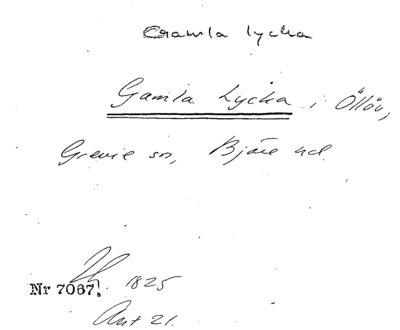 Gamla lycka
Gamla Lycka i Öllöv,
Grevie sn, Bjäre hd.
Nr 7067. 1825
Ant 21.